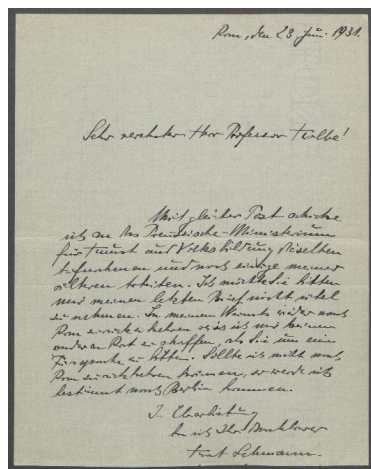 Rom, den 23. Juni 1931.
Sehr verehrter Herr Professor Kolbe!
Mit gleicher Post schicke
ich an das Preussische-Ministerium
für Kunst und Volksbildung dieselben
Aufnahmen und noch einige meiner
älteren Arbeiten. Ich möchte Sie bitten
mir meinen letzten Brief nicht übel
zu nehmen. In meinem Wunsch wieder nach
Rom zurückzukehren wusste ich mir keinen
anderen Rat zu schaffen, als Sie um eine
Fürsprache zu bitten. Sollte ich nicht nach
Rom zurückkehren können, so werde ich
bestimmt nach Berlin kommen.
In
bin ich Ihr dankbarer
Kurt Lehmann.